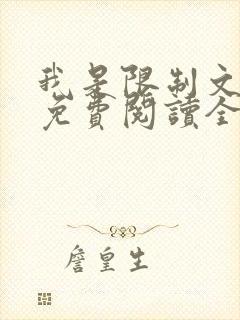 我是限制文
免費閱讀全
詹皇生